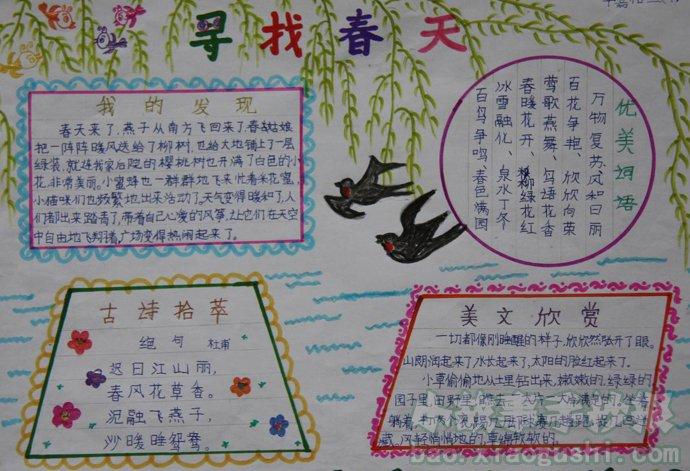 寻找春天
我的发现
春天来了，燕子从南方飞回来了，春姑娘
把一阵阵暖风送给了柳树，也给大地铺上了一层
绿装，就连我家后院的樱桃树也开满了白色的小
花，非常美丽。小蜜蜂也一群群地飞来忙着采花蜜，
小猫咪们也频繁地出来活动了，天气变得暖和了，人
们都出来踏青了，带着自己心爱的风筝，让它们在天空
中自由地飞翔着，广场变得热闹起来了。
优美词语
万物复苏、风和日丽
百花争艳、欣欣向荣
莺歌燕舞、鸟语花香
春暖花开、柳绿花红
冰雪融化、泉水丁冬
百鸟争鸣、春色满园
古诗拾萃
绝句 杜甫
迟日江山丽，
春风花草香。
泥融飞燕子，
沙暖睡鸳鸯。
美文欣赏
一切都像刚睡醒的样子，欣欣然张开了眼。
山朗润起来了，水长起来了，太阳的脸红起来了。
小草偷偷地从土里钻出来，嫩嫩的，绿绿的
园子里，田野里，瞧去，一大片一大片满是的。坐着，
躺着，打两个滚，踢几
风轻悄悄地的，草绵软软的。
baor.xiaogushi.com